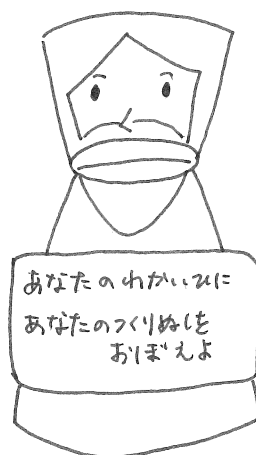 あなたのわかいひに
あなたのつくりぬしを
おぼえよ